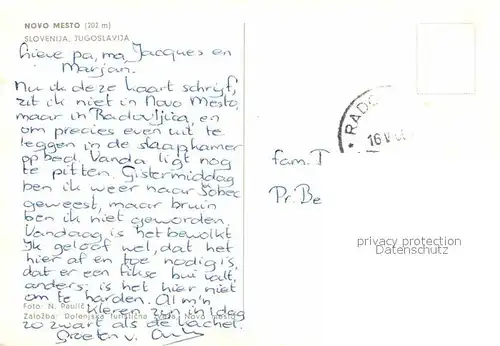 NOVO MESTO (202 m)
SLOVENIJA, JUGOSLAVIJA
Lieve pa, ma, Jacques en
Marjan.
Nu ik deze kaart schrijf,
zit ik niet in Novo Mesto,
maar in Radovljica, en
om precies even uit te
leggen in de slaapkamer
op bed. Vanda ligt nog
te pitten. Gistermiddag
ben ik weer naar Šobec
geweest, maar bruin
ben ik niet geworden.
Vandaag is het bewolkt
Ik geloof wel, dat het
hier af en toe nodig is,
dat er een fikse bui valt,
anders is het hier niet
om te harden. Al m'n
Foto: N. Paulič
kleren zijn in 1 dag
Založba: Dolenjska turistična zveza Novo mesto
zo zwart als de kachel.
Groeten v.
RADO
16 V
fam. T
Pr. Be
privacy protection
Datenschutz